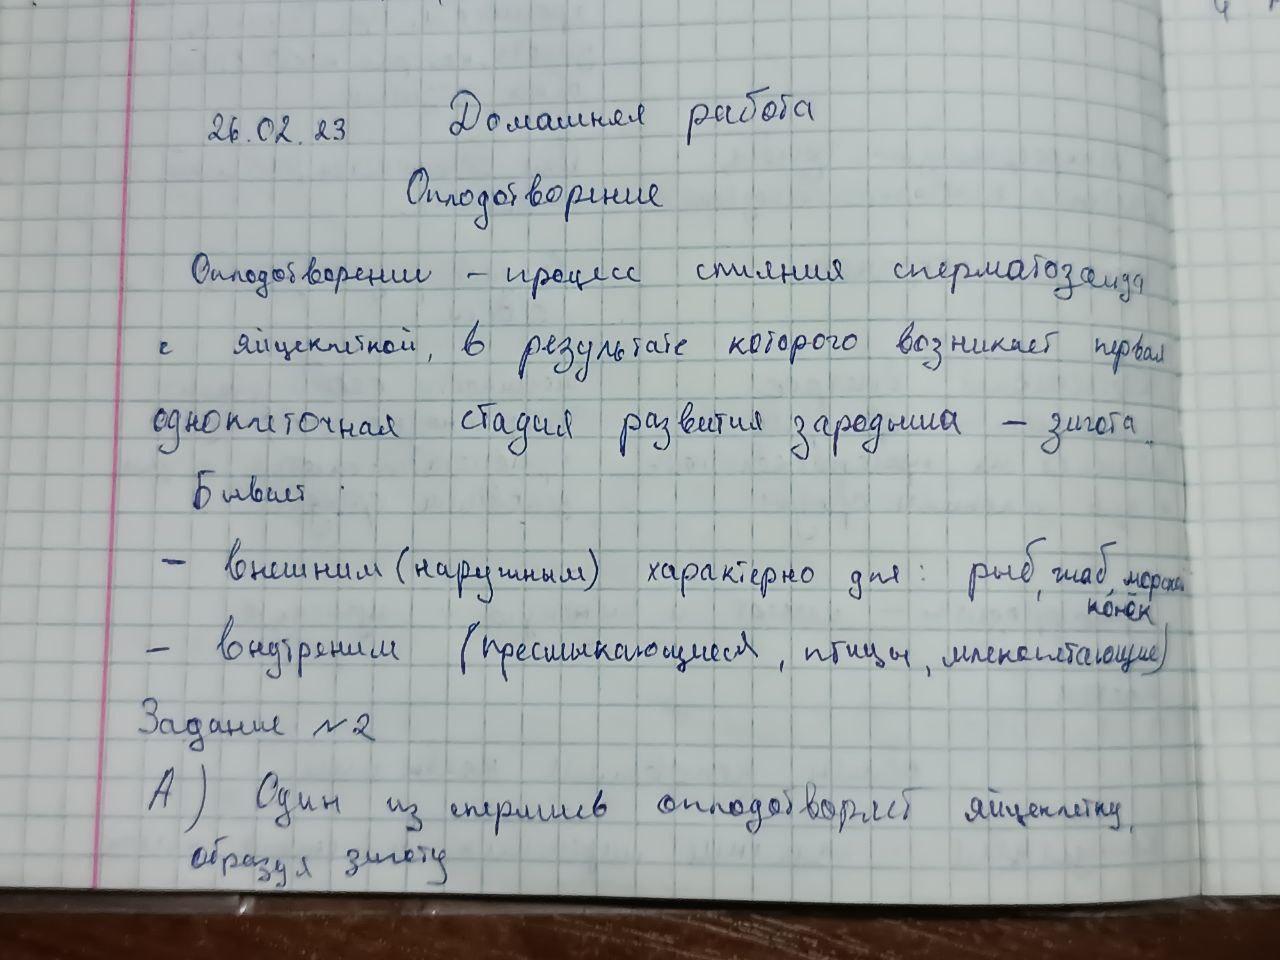 26.02.23 Домашняя работа
Оплодотворение
Оплодотворении - процесс слияния сперматозоида
с яйцеклеткой, в результате которого возникает первая
одноклеточная стадия развития зародыша - зигота.
Бывает:
- внешним (наружным) характерно для: рыб, жаб, морской
конёк
- внутреним (пресмыкающиеся, птицы, млекопитающие)
Задание №2
А) Один из спермиев оплодотворяет яйцеклетку,
образуя зиготу